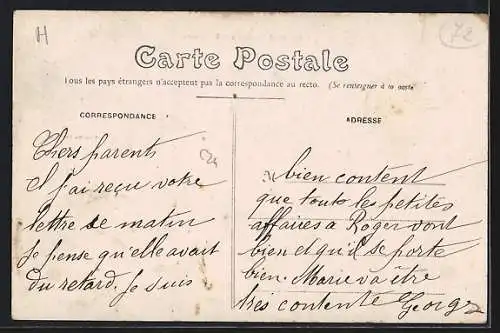 H
72
Carte Postale
Tous les pays étrangers n'acceptent pas la correspondance au recto. (Se renseigner à la poste
CORRESPONDANCE
ADRESSE
Chers parents
C24
J'ai reçu votre
lettre de matin
Je pense qu'elle avait
du retard. Je suis
bien content
que toute les petites
affaires a Roger vont
bien et qu'il se porte
bien. Marie va être
tres contente George